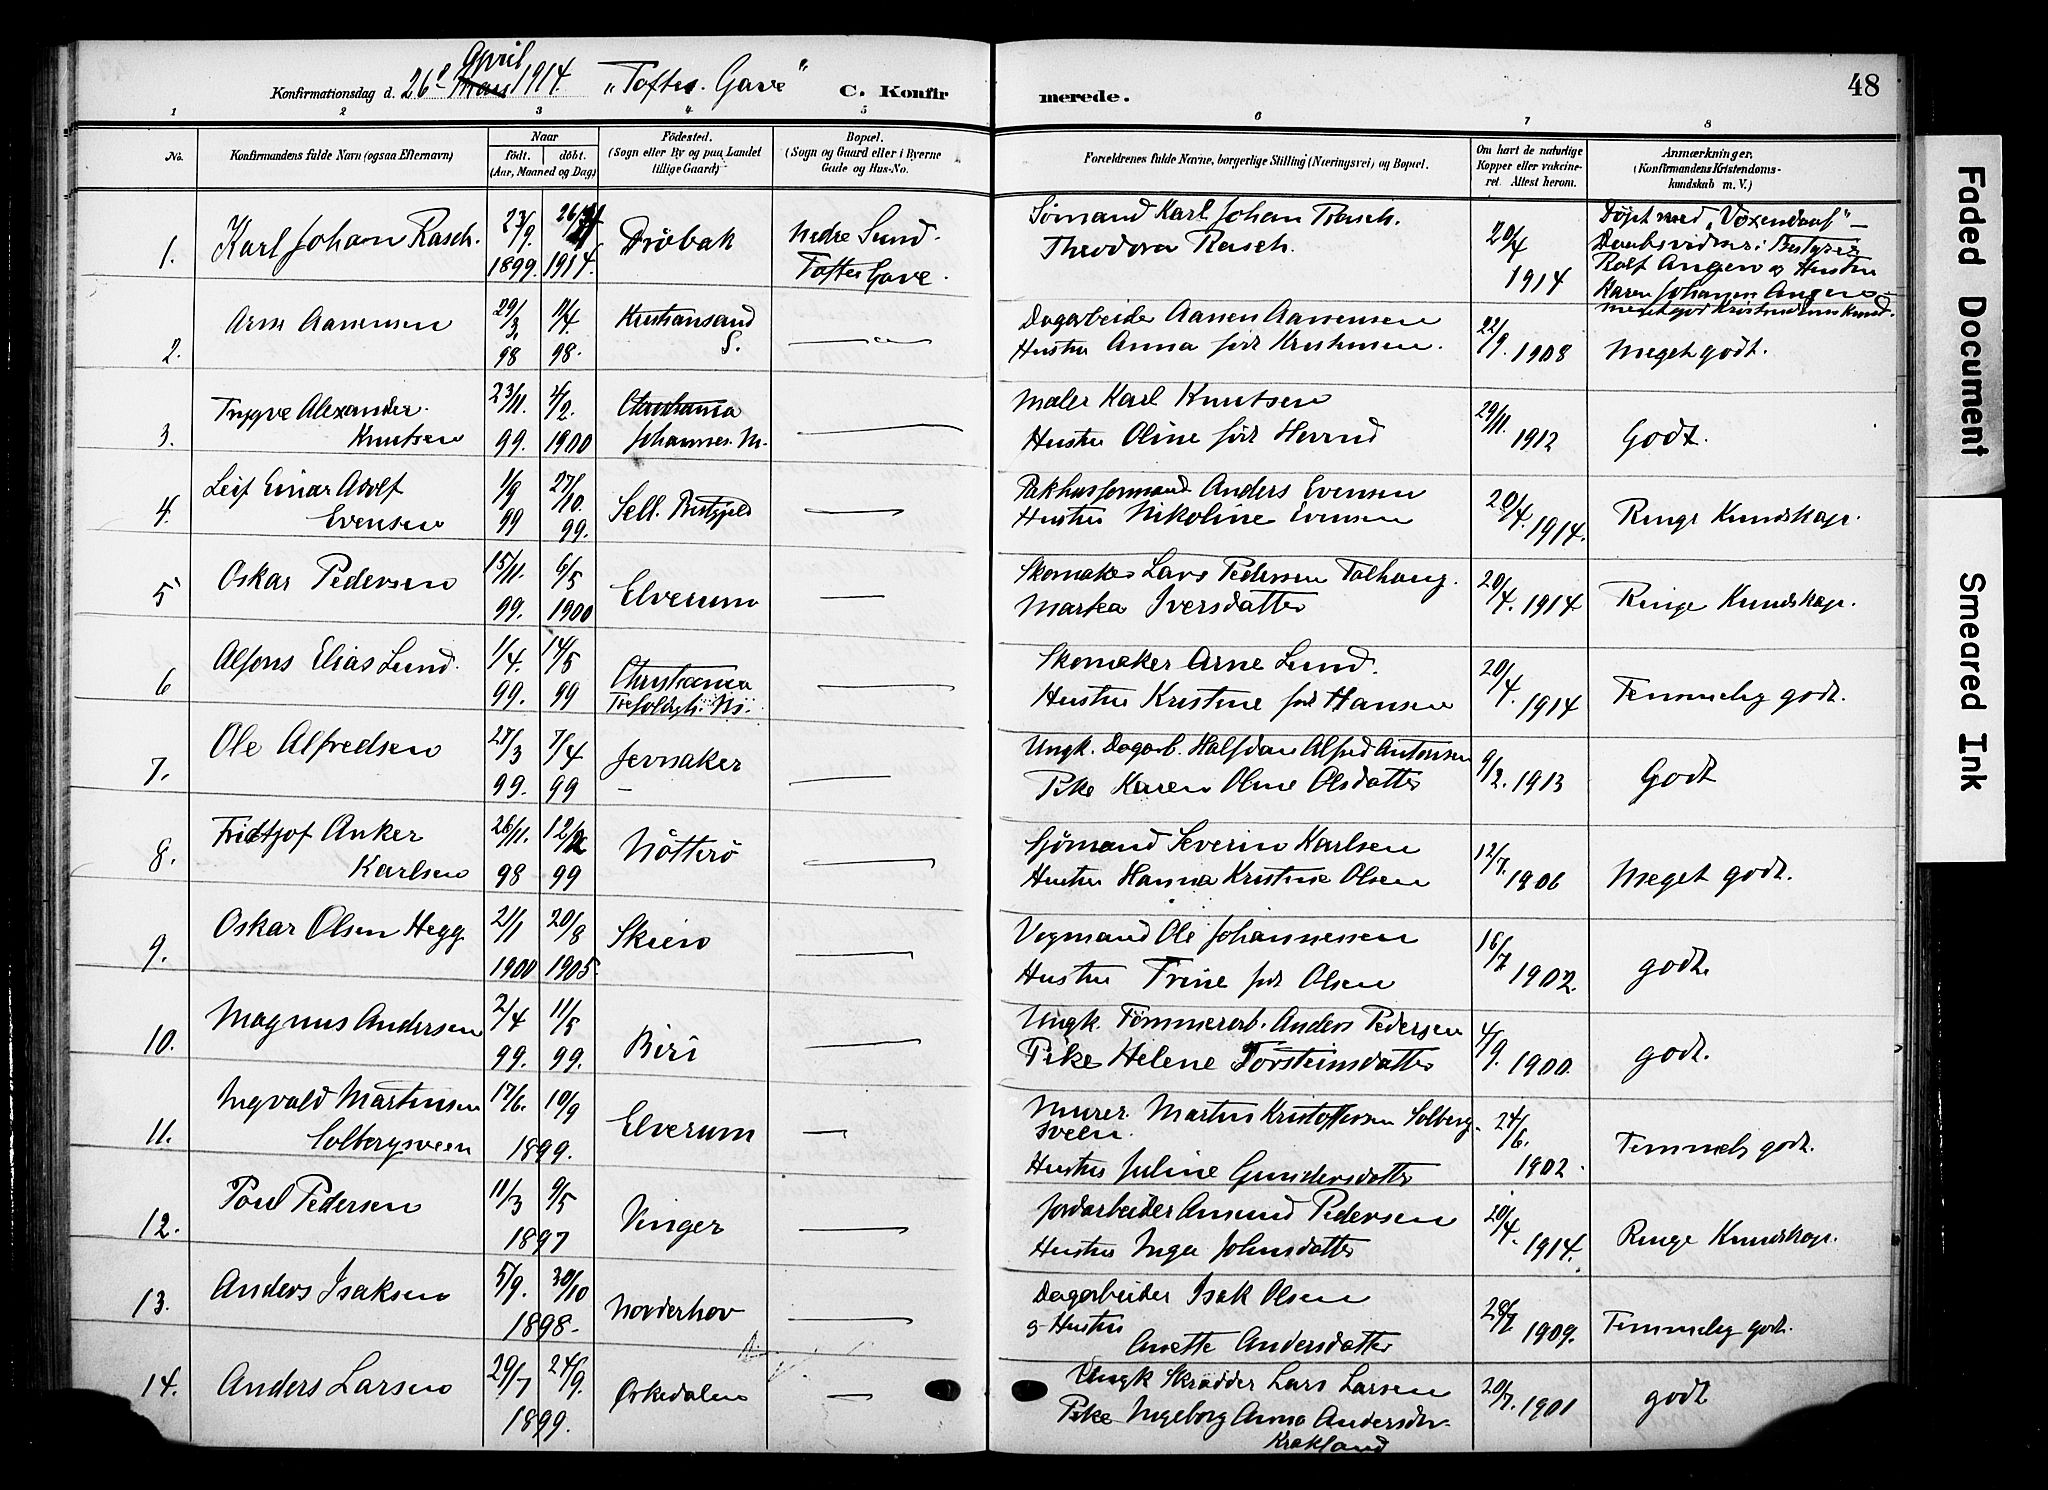 Konfirmationsdag d. 26de April 1914. "Toftes Gave" C. Konfirmerede. 48
1 2 3 4 5 6 7 8
No.
Konfirmandens fulde Navn (ogsaa Efternavn)
Naar
födt. döbt.
(Aar, Maaned og Dag)
Födested.
(Sogn eller By og paa Landet
tillige Gaard)
Bopæl.
(Sogn og Gaard eller i Byerne
Gade og Hus-No.
Forældrenes fulde Navne, borgerlige Stilling (Næringsvei) og Bopæl.
Om havt de naturlige
Kopper eller vakcine-
ret. Attest herom.
Anmærkninger.
(Konfirmandens Kristendoms-
kundskab m. V.)
1. Karl Johan Rasch. 23/9. 1899. 1914. Dröbak Nedre Sund. Toftes Gave.
Sømand Karl Johan Rasch.
Theodora Rasch.
20/4 1914
Døpt med "Voxendaab" -
Daabsvidner: Bestyrer
Rolf Angen og Hustru
Karen Johanne Angen -
Meget god Kristendomskunds.
2. Arne Aanensen 29/3. 98 11/4. 98. Kristiansand S.
Dagarbeider Aanen Aanensen
Hustru Anna född Kristensen.
22/9. 1908 Meget godt.
3. Trygve Alexander
Knutsen 23/11. 99. 4/2. 1900 Christiania
Johannes. M.
Maler Karl Knutsen
Hustru Oline född
29/11. 1912 Godt.
4. Leif Einar Adolf
Evensen 1/9 99 27/10. 99.
Pakhusformand Anders Evensen
Hustru Nikoline Evensen
20/4. 1914. Ringe Kundskap.
5 Oskar Pedersen 15/11. 99. 6/5 1900 Elverum
Skomaker Lars Pedersen
Martea Iversdatter
20/4. 1914 Ringe Kundskap.
6 Alfons Elias Lund. 1/4. 99. 14/5 99 Christiania
Trefoldigh. Ms.
Skomaker Arne Lund.
Hustru Kristine född Hansen
20/4. 1914 Temmelig godt.
7. Ole Alfredsen 27/3 99. 7/4 99 Jevnaker
Ungk. Dagarb. Halfdan Alfred Antonsen
Pike Karen Oline Olsdatter
9/2. 1913 Godt
8. Fridtjof Anker
Karlsen 26/11. 98 99 Nötterö
Sjömand Severin Karlsen
Hustru Hanna Kristine Olsen
12/7. 1906 Meget godt.
9. Oskar Olsen Hegg 21/1 1900 20/8 1905. Skien
Vognmand Ole Johannessen
Hustru Trine född Olsen
16/7 1902. godt.
10. Magnus Andersen 2/4 99. 11/5 99. Biri
Ungk. Tømmerarb. Anders Pedersen
Pike Helene Torsteinsdatter
4/9. 1900. godt.
11. Ingvald Martinsen
Solbergsveen 17/6. 10/9 1899. Elverum
Murer. Martin Kristoffersen Solberg-
sveen.
Hustru Juline Gundersdatter
24/6. 1902. Temmelig godt.
12. Poul Pedersen 11/3 9/5 1897 Vinger
Jordarbeider Amund Pedersen
Hustru Inga Johnsdatter
20/4. 1914. Ringe Kundskap.
13. Anders Isaksen 5/9. 30/10 1898. Norderhov
Dagarbeider Isak Olsen
og Hustru
Anette Andersdatter
1909. Temmelig godt.
14. Anders Larsen 29/7 24/9. 1899. Orkedalen
Ungk Skrædder Lars Larsen
Pike Ingeborg Anna Andersdtr.
Krokland
20/7. 1901 godt
Faded Document
Smeared Ink